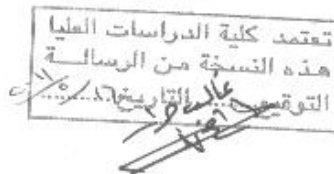 تعتمد كلية الدراسات العليا
هذه النسخة من الرسالــة
التوقيع التاريخ